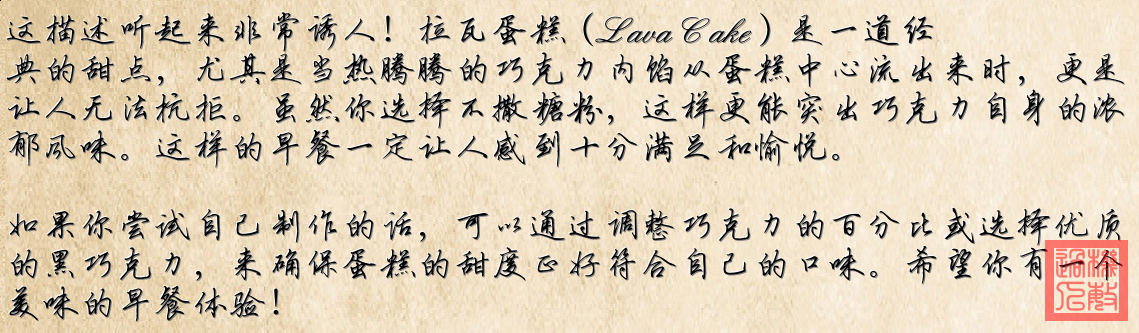 这描述听起来非常诱人！拉瓦蛋糕（Lava Cake）是一道经
典的甜点，尤其是当热腾腾的巧克力内馅从蛋糕中心流出来时，更是
让人无法抗拒。虽然你选择不撒糖粉，这样更能突出巧克力自身的浓
郁风味。这样的早餐一定让人感到十分满足和愉悦。
如果你尝试自己制作的话，可以通过调整巧克力的百分比或选择优质
的黑巧克力，来确保蛋糕的甜度正好符合自己的口味。希望你有一个
美味的早餐体验！